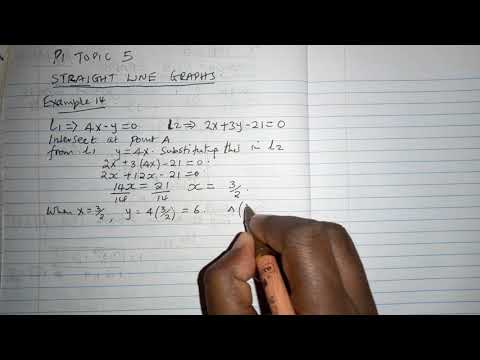 P1 TOPIC 5
STRAIGHT LINE GRAPHS.
Example 14
l1 => 4x-y=0 l2 => 2x+3y-21=0
Intersect at point A
from l1 y=4x. Substituting this in l2
2x + 3(4x) - 21 = 0.
2x + 12x - 21 = 0
14x/14 = 21/14 x = 3/2.
When x = 3/2, y = 4(3/2) = 6. A(